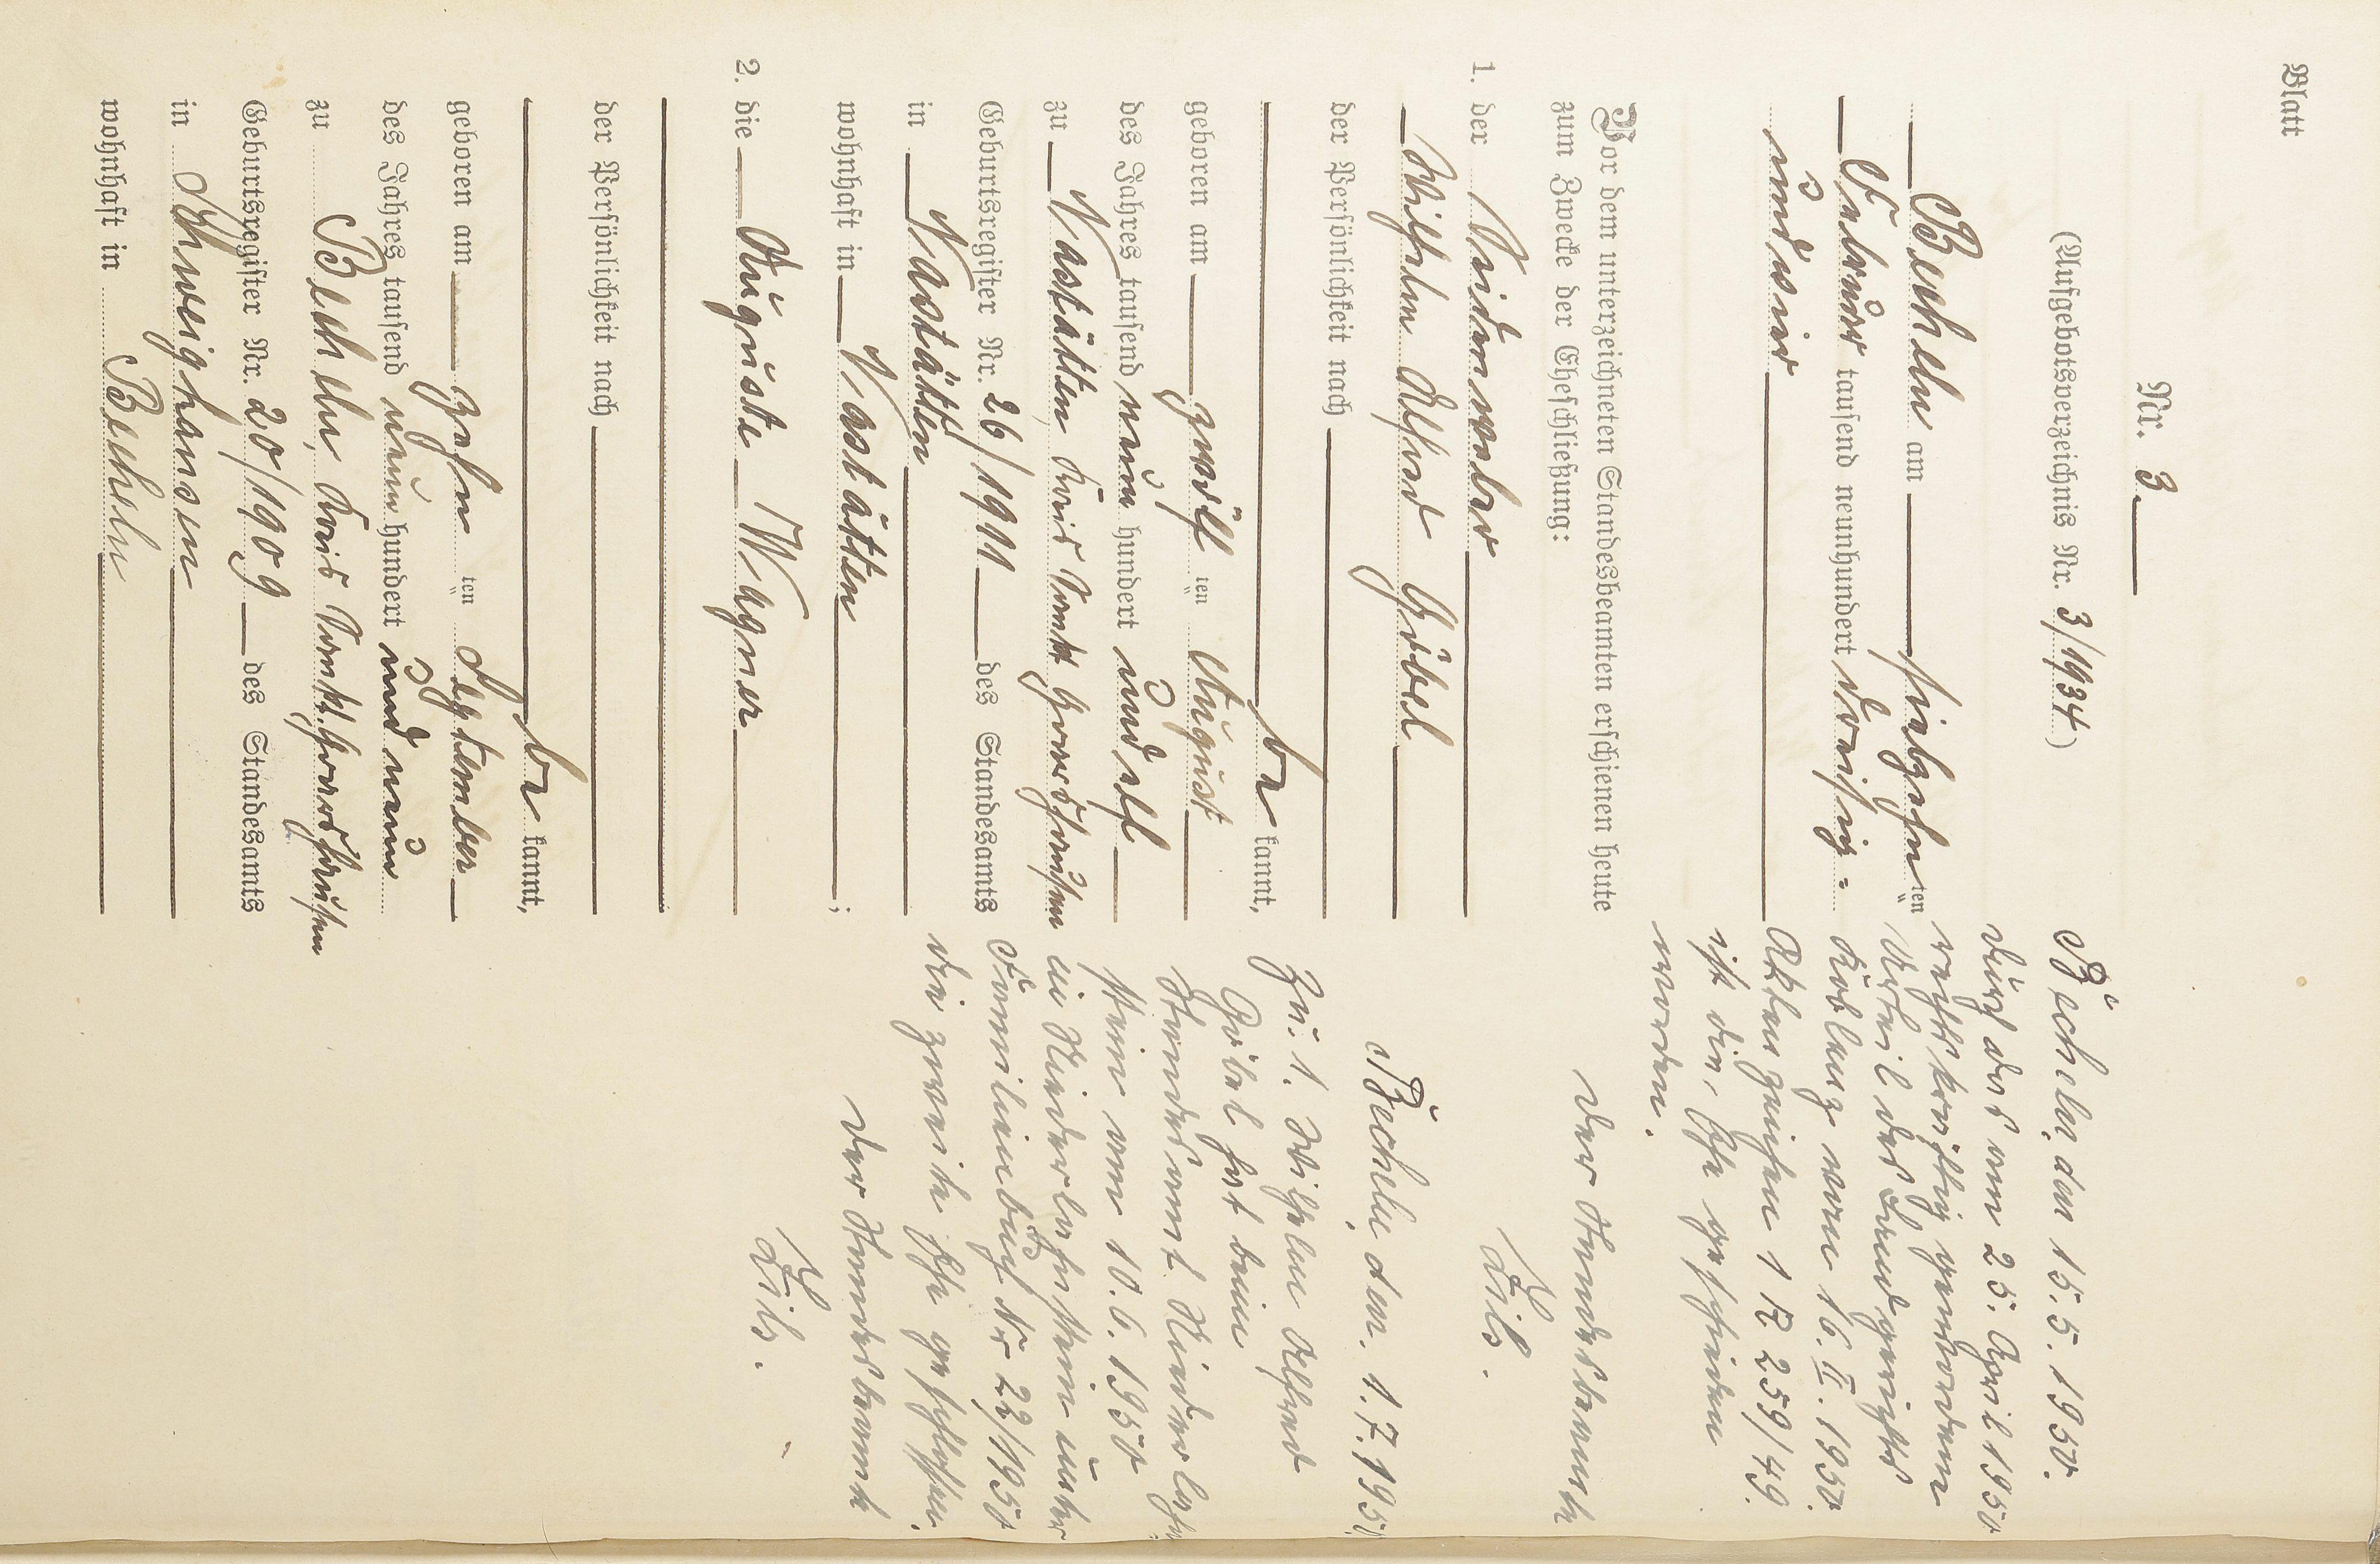 Blatt
Nr. 3
(Aufgebotsverzeichnis Nr. 3/1934)
Becheln am siebzehnten
Februar tausend neunhundert dreißig=
und vier
Vor dem unterzeichneten Standesbeamten erschienen heute
zum Zwecke der Eheschließung:
1. der
Wilhelm Alfred Göbel
der Persönlichkeit nach
be kannt,
geboren am zwölf ten August
des Jahres tausend neun hundert und elf
zu Nastätten, Kreis Sankt Goarshausen
Geburtsregister Nr. 26/1911 des Standesamts
in Nastätten
wohnhaft in Nastätten ;
2. die Auguste Wagner
der Persönlichkeit nach
be kannt,
geboren am zehn ten September
des Jahres tausend neun hundert und neun
zu Becheln, Kreis Sankt Goarshausen
Geburtsregister Nr. 20/1909 des Standesamts
in Schweighausen
wohnhaft in Becheln
Becheln, den 15.5.1950.
Durch das am 25. April 1950
rechtskräftig gewordene
Urteil des Landgerichts
Koblenz vom 16.II.1950.
Aktenzeichen 1 R 259/49.
ist die Ehe geschieden
worden.
Der Standesbeamte
Becheln, den 1.7.195
Zu 1. Wilhelm Alfred
Göbel hat beim
Standesamt Niederlahn
stein am 10.6.1950
in Niederlahnstein unter
Familienbuch Nr 22/1950
die zweite Ehe geschlossen.
Der Standesbeamte